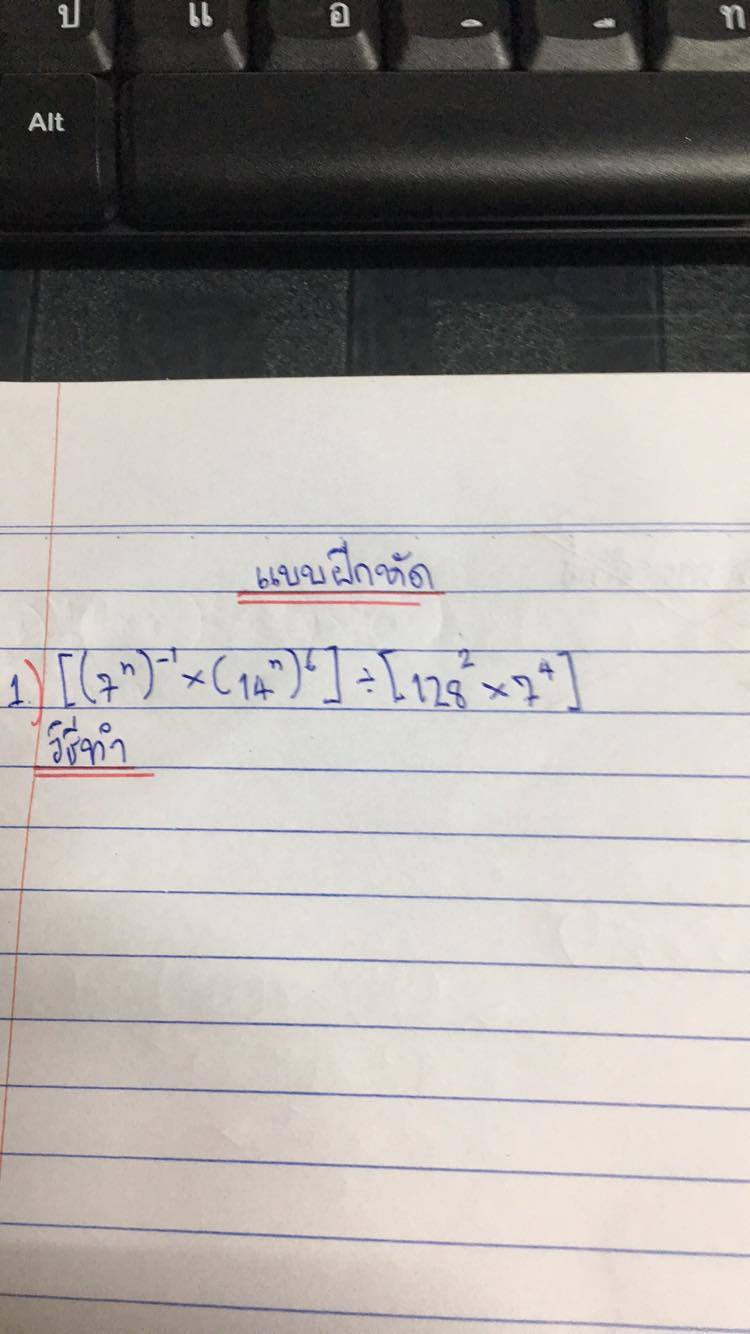 ป แ อ ท
Alt
แบบฝึกหัด
1.) [(7ⁿ)⁻¹ × (14ⁿ)⁶] ÷ [128² × 7⁴]
วิธีทำ